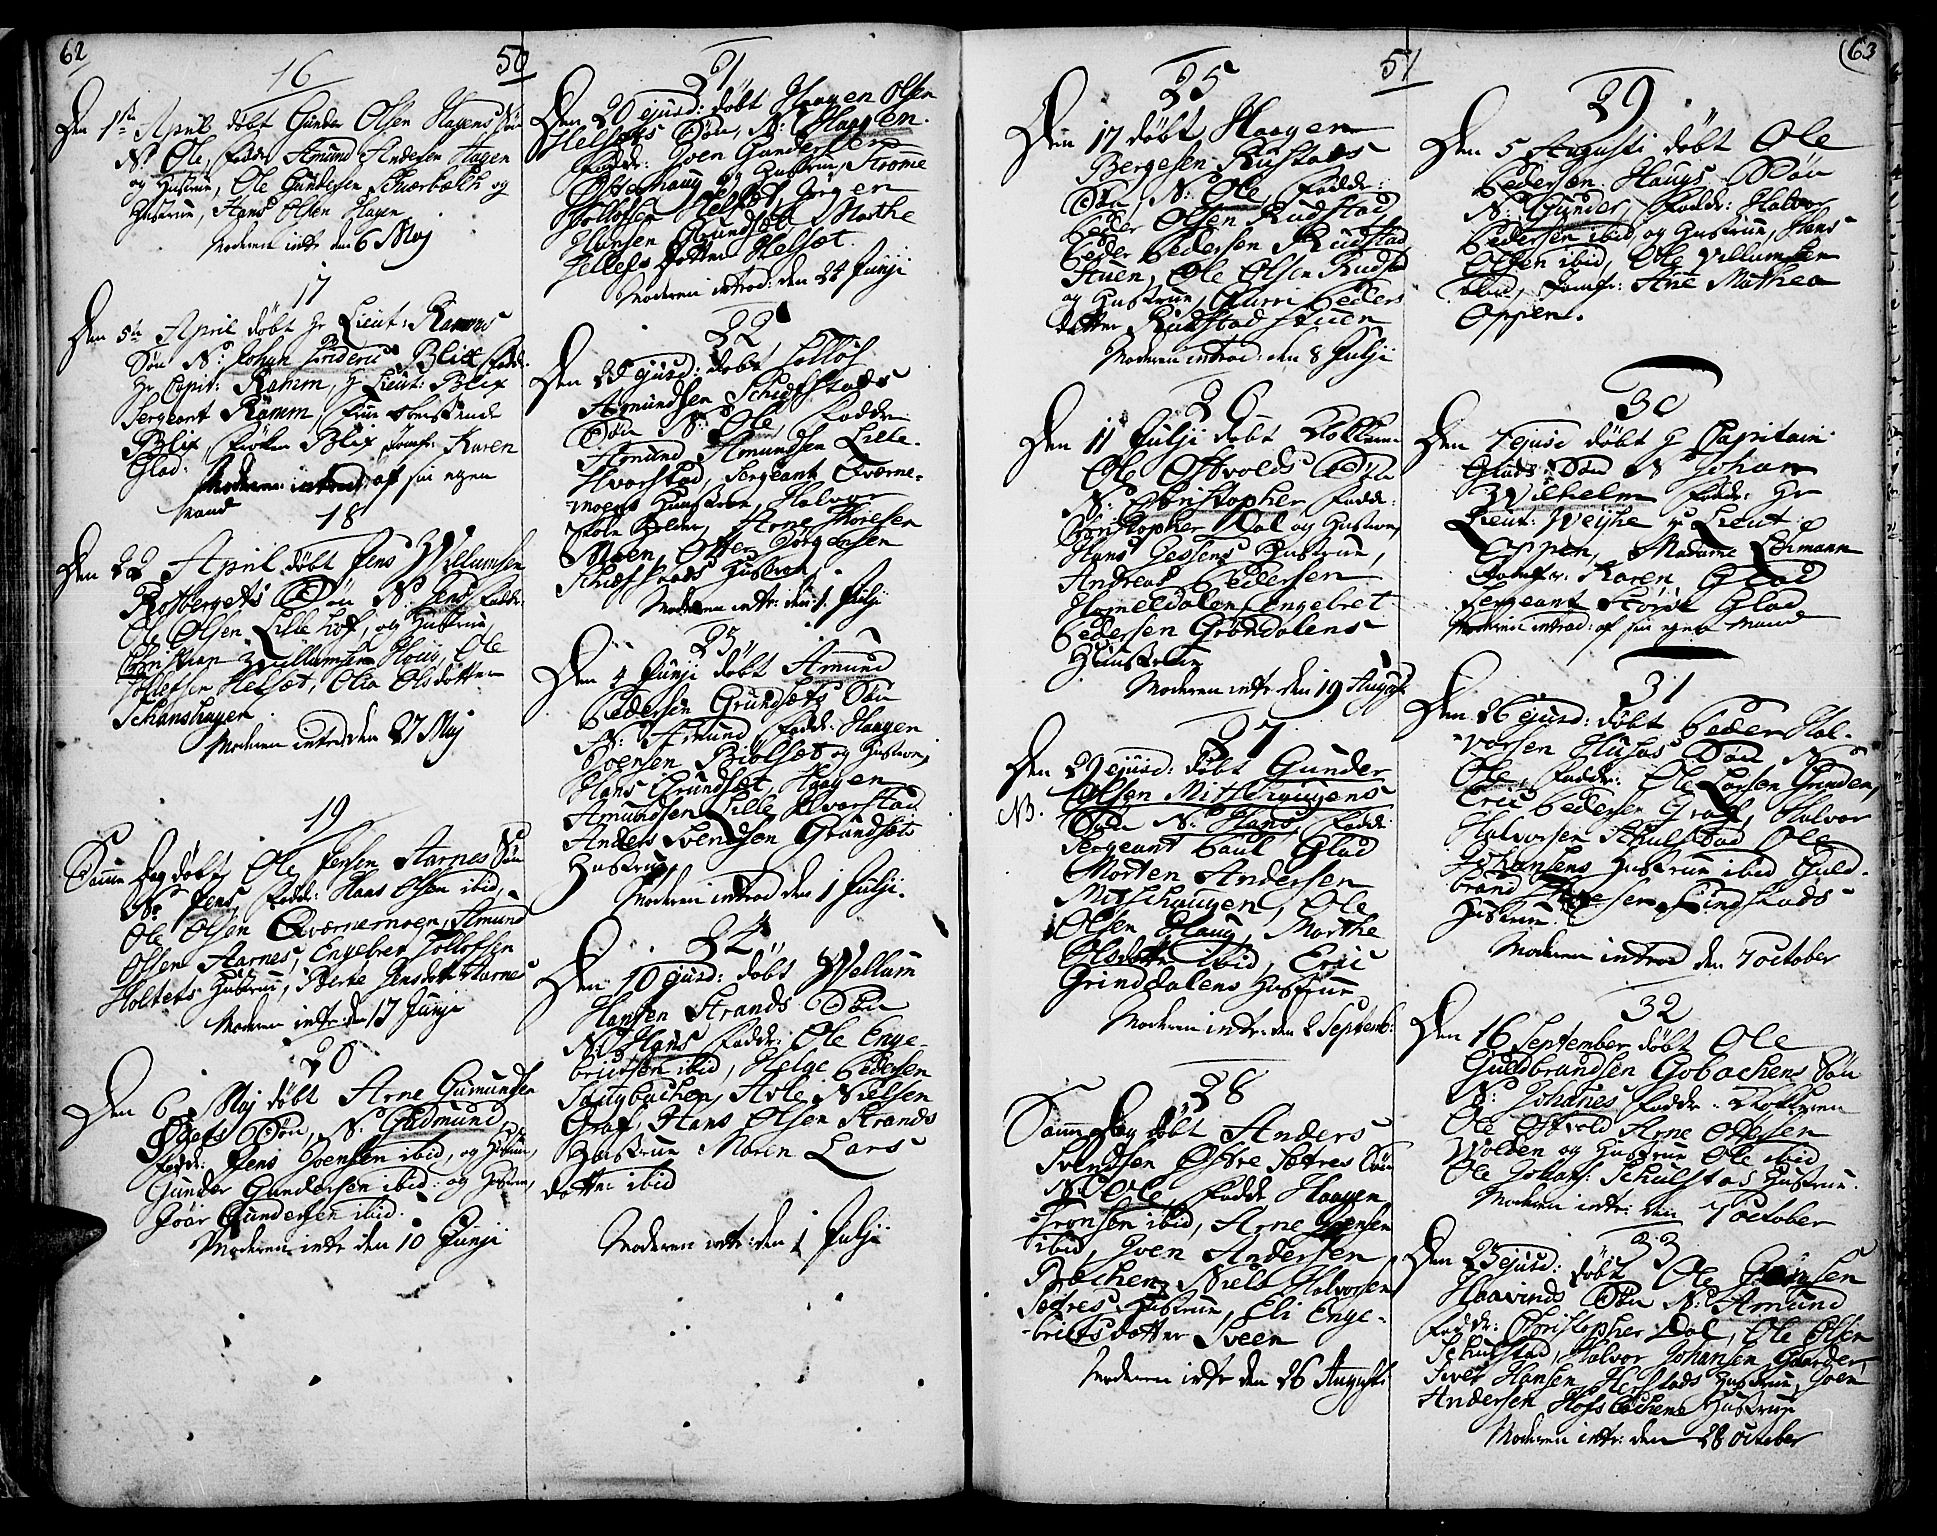 62
50
16
Den 1ste April døbt Gunder Olsen Hagens Søn
N: Ole, Faddr: Amund Andersen Hagen
og Hustrue, Ole Gundersen Skierbæch og
Hustrue, Hans Olsen Hagen
Moderen intr: den 6 Maj
17
Den 5te April døbt Hr Lieut: Ramms
Søn N: Johan Frideric Blix Faddr:
Hr Capit: Ramm, Hr Lieut: Blix
Sergeant Ramm, Frue
Blix, Frøken Blix Jomfr: Karen
Glad.
Moderen introd: af sin egen
Mand
18
Den 22 April døbt Jens Willumsen
Rosbergets Søn N: Jens, Faddr:
Ole Olsen Lille Hof, og Hustrue,
Christian Willumsen Ole
Tollefsen Helset, Olia Olsdotter
Schanshagen
Moderen introd: den 27 Maj
19
Samme Dag døbt Ole Jensen Aarnes Søn
N: Jens, Faddr: Hans Olsen ibid,
Ole Olsen Qværnemoen, Amund
Olsen Aarnes, Engebret Tollofsen
Holtets Hustrue, Berte Jensdotter Aarnes
Moderen intr: den 17 Junji
20
Den 6 Maj døbt Arne Gumundsen
Øgets Søn, N: Gudmund,
Faddr: Jens Joensen ibid, og Hustrue,
Gunder Gundersen ibid: og Hustrue,
Joär Gundersen ibid.
Moderen intr: den 10 Junji
21
Den 20 ejusd: døbt Haagen Olsen
Helsets Søn, N: Haagen.
Faddr: Joen Gundersen
Østerhaug og Hustrue, Strøme
Tollofsen Helset, Jørgen
Hansen Grundset, Marthe
Tellefs Dotter Helsæt.
Moderen introd: den 24 Junji
22
Den ejusd: døbt Tolløf
Amundsen Schiefstads
Søn N: Ole, Faddr:
Amund Amundsen Lille-
Hvorstad, Sergeant Qværne-
moens Hustrue, Halvor
Arne Thoresen
Moen, Otter Jørgensen
Schiefstads Hustrue
Moderen intr: den 1 Julji
23
Den 4 Junji døbt Amund
Pedersen Grundsets Søn
N: Amund, Faddr: Haagen
Joensen Biølset og Hustrue,
Hans Grundset, Haagen
Amundsen Lille Hvorstad
Anders Svendsen Grundsets
Hustrue
Moderen introd den 1 Julji.
24
Den 10 ejusd: døbt Wellum
Hansen Strands Søn
N: Hans Faddr: Ole Enge-
brietsen ibid, Helge Pedersen
Saugbachen, Arle Nielsen
Graf, Hans Olsen Strands
Hustrue Maren Lars
dotter ibid
Moderen intr: den 1 Julji
51
63
25
Den 17 døbt Haagen
Bergesen Rustads
Søn, N: Ole, Faddr:
Peder Olsen Rudstad,
Peder Pedersen Rudstad
Stuen, Ole Olsen Rudstad
og Hustrue, Gurri Peders
dotter Rudstad Stuen
Moderen introd: den 8 Julji
26
Den 11 Julji døbt Klokkeren
Ole Ostvolds Søn
N: Christopher Faddr:
Christopher Dal og Hustrue,
Hans Jessens Hustrue,
Andreas Pedersen
Homeldalen, Engebret
Pedersen Grøndalens
Hustrue
Moderen intr: den 19 August
27
Den 29 ejusd: døbt Gunder
NB.
Olsen Mitthaugens
Søn N: Hans, Faddr:
Sergeant Paul Glad
Morten Andersen
Mitthaugen, Ole
Olsen Haug, Marthe
Olsdotter ibid, Eric
Grinddalens Hustrue
Moderen intr: den 2 Septemb:
28
Samme Dag døbt Anders
Svendsen Østre Sætres Søn
N: Ole, Faddr: Haagen
Tronsen ibid, Arne Joensen
ibid, Joen Andersen
Bæchen, Niels Halvorsen
Sætres Hustrue, Eli Enge-
bretsdotter Sveen
Moderen intr: den 26 Augusti
29
Den 5 Augusti døbt Ole
Pedersen Haugs Søn
N: Gunder, Faddr: Halvor
Pedersen ibid, og Hustrue, Hans
Olsen ibid, Ole Villumsen
ibid, Jomfr: Ane Mathea
Oppen.
30
Den 7 ejusd døbt Hr Capitain
Glads Søn N Johan
Wilhelm Faddr: Hr
Lieut: Weyhe Hr Lieut:
Oppen, Madame Lehmann
Jomfr: Karen Glad
Sergeant Glad
Moderen introd: af sin egen Mand
31
Den 26 ejusd: døbt Peder Hal-
vorsen Husås Søn N
Ole, Faddr: Ole Larsen Grinden,
Eric Pedersen Graf, Halvor
Halvorsen Schulstad Ole
Johansens Hustrue ibid Guld-
brand Findstads
Hustrue
Moderen introd den 7 October
32
Den 16 September døbt Ole
Guldbrandsen Gobachens Søn
N: Johanes Faddr: Klokkeren
Ole Ostvold Arne Ottesen
Wolden og Hustrue Ole ibid
Ole Johans: Schulstads Hustrue.
Moderen intr: den 7 October
33
Den 23 ejusd: døbt Ole Joensen
Haavinds Søn N: Amund
Faddr: Christopher Dal, Ole Olsen
Schulstad, Halvor Johansen Gaarder,
Iver Hansen Herstads Hustrue, Joen
Andersen Hofsbachens Hustrue
Moderen intr: den 28 October